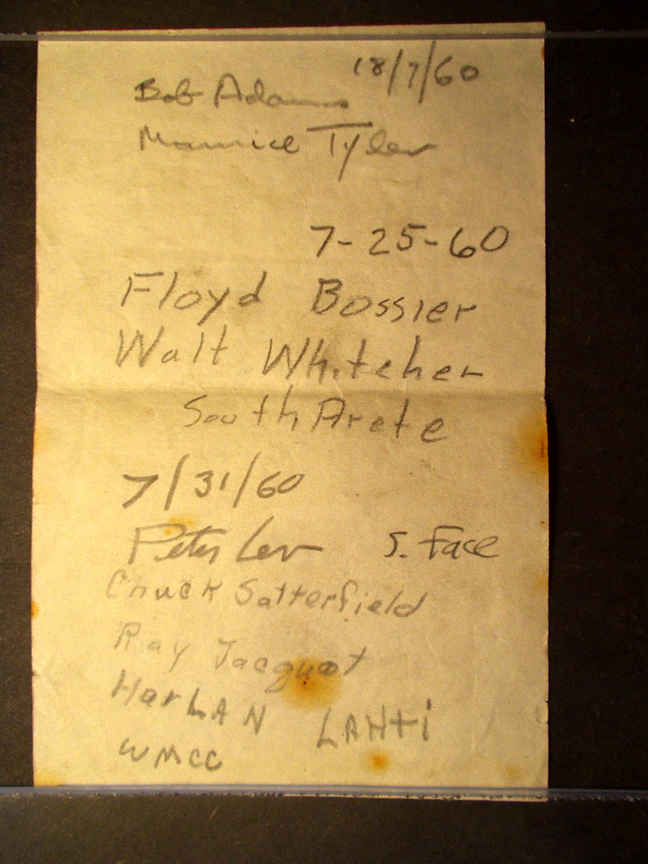 18/7/60
Bob Adams
Maurice Tyler
7-25-60
Floyd Bossier
Walt Whitcher
South Arete
7/31/60
Peter Lev S. Face
Chuck Satterfield
Ray Jacquot
HarLAN LAHti
WMCC